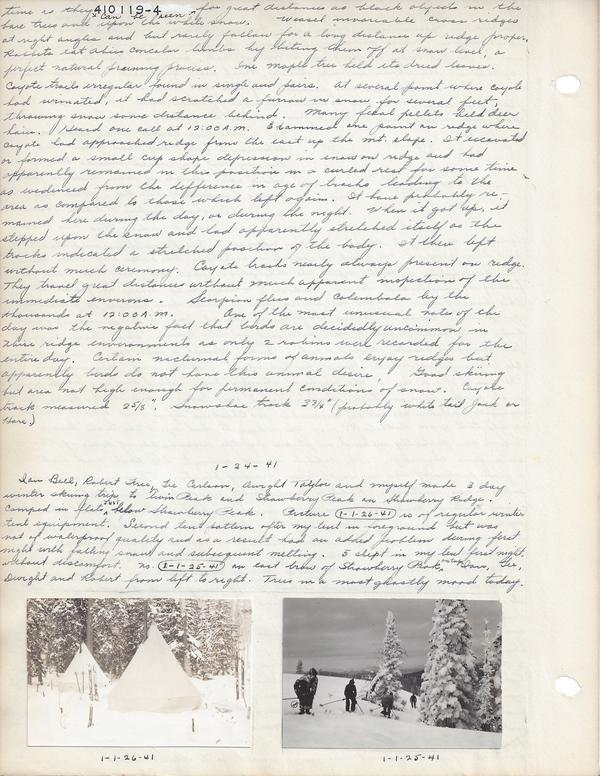 410119-4
time is they can be seen for great distances as black objects in the
bare trees and upon the white snow. Weasel invariable cross ridges
at right angles and but rarely follow for a long distance up ridge proper.
Rabbits eat Abies concolor limbs by biting them off at snow level, a
perfect natural pruning process. One maple tree held its dried leaves.
Coyote tracks irregular found in single and pairs. At several point where coyote
had urinated, it had scratched a furrow in snow for several feet,
throwing snow some distance behind. Many fecal pellets held deer
hair. Heard one call at 12:00 A.M. Examined one point on ridge where
coyote had approached ridge from the east up the mt. slope. It excavated
or formed a small cup shape depression in snow on ridge and had
apparently remained in this position in a curled rest for some time
as evidenced from the difference in age of tracks leading to the
area as compared to those which left again. It have probably re-
mained here during the day, or during the night. When it got up, it
stepped upon the snow and had apparently stretched itself as the
tracks indicated a stretched position of the body. It then left
without much ceremony. Coyote tracks nearly always present on ridge.
They travel great distances without much apparent inspection of the
immediate environs. Scorpion flies and Colembola by the
thousands at 12:00 A.M. One of the most unusual notes of the
day was the negative fact that birds are decidedly uncommon in
these ridge environments as only 2 robins were recorded for the
entire day. Certain nocturnal forms of animals enjoy ridges but
apparently birds do not have this animal desire. Good skiing
but area not high enough for permanent conditions of snow. Coyote
track measured 2 5/8", Snowshoe track 3 3/4" (probably white tail Jack or
Hare.)
1-24-41
Ian Bell, Robert Frei, Lee Carlson, Dwight Taylor and myself made 3 day
winter skiing trip to Twin Peak and Strawberry Peak on Strawberry Ridge.
Camped in flats just below Strawberry Peak. Picture 1-1-26-41 is of regular winter
tent equipment. Second tent pattern after my tent in foreground but was
not of waterproof quality and as a result had an added problem during first
night with falling snow and subsequent melting. 5 slept in my tent first night,
without discomfort. no. 1-1-25-41 on east brow of Strawberry Peak, Ian, Lee,
Dwight and Robert from left to right. Trees in a most ghostly mood today.
1-1-26-41
1-1-25-41